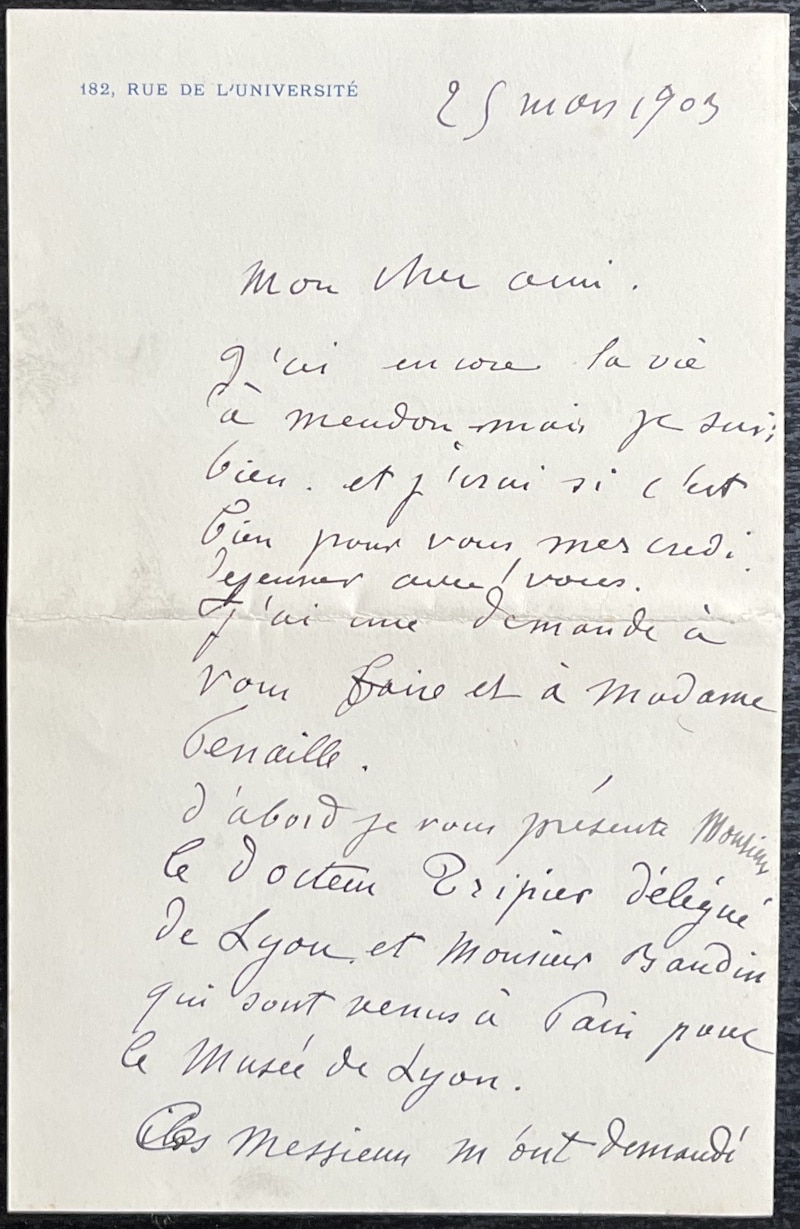 182, RUE DE L'UNIVERSITÉ
25 mars 1903
Mon cher ami.
J'ai encore la vie
à meudon mais je suis
bien. et j'irai si c'est
bien pour vous mercredi
dejeuner avec vous.
J'ai une demande à
vous faire et à Madame
Fenaille.
d'abord je vous présente Monsieur
le Docteur Tripier délégué
de Lyon et Monsieur Baudin
qui sont venus à Paris pour
le Musée de Lyon.
Ces Messieurs m'ont demandé